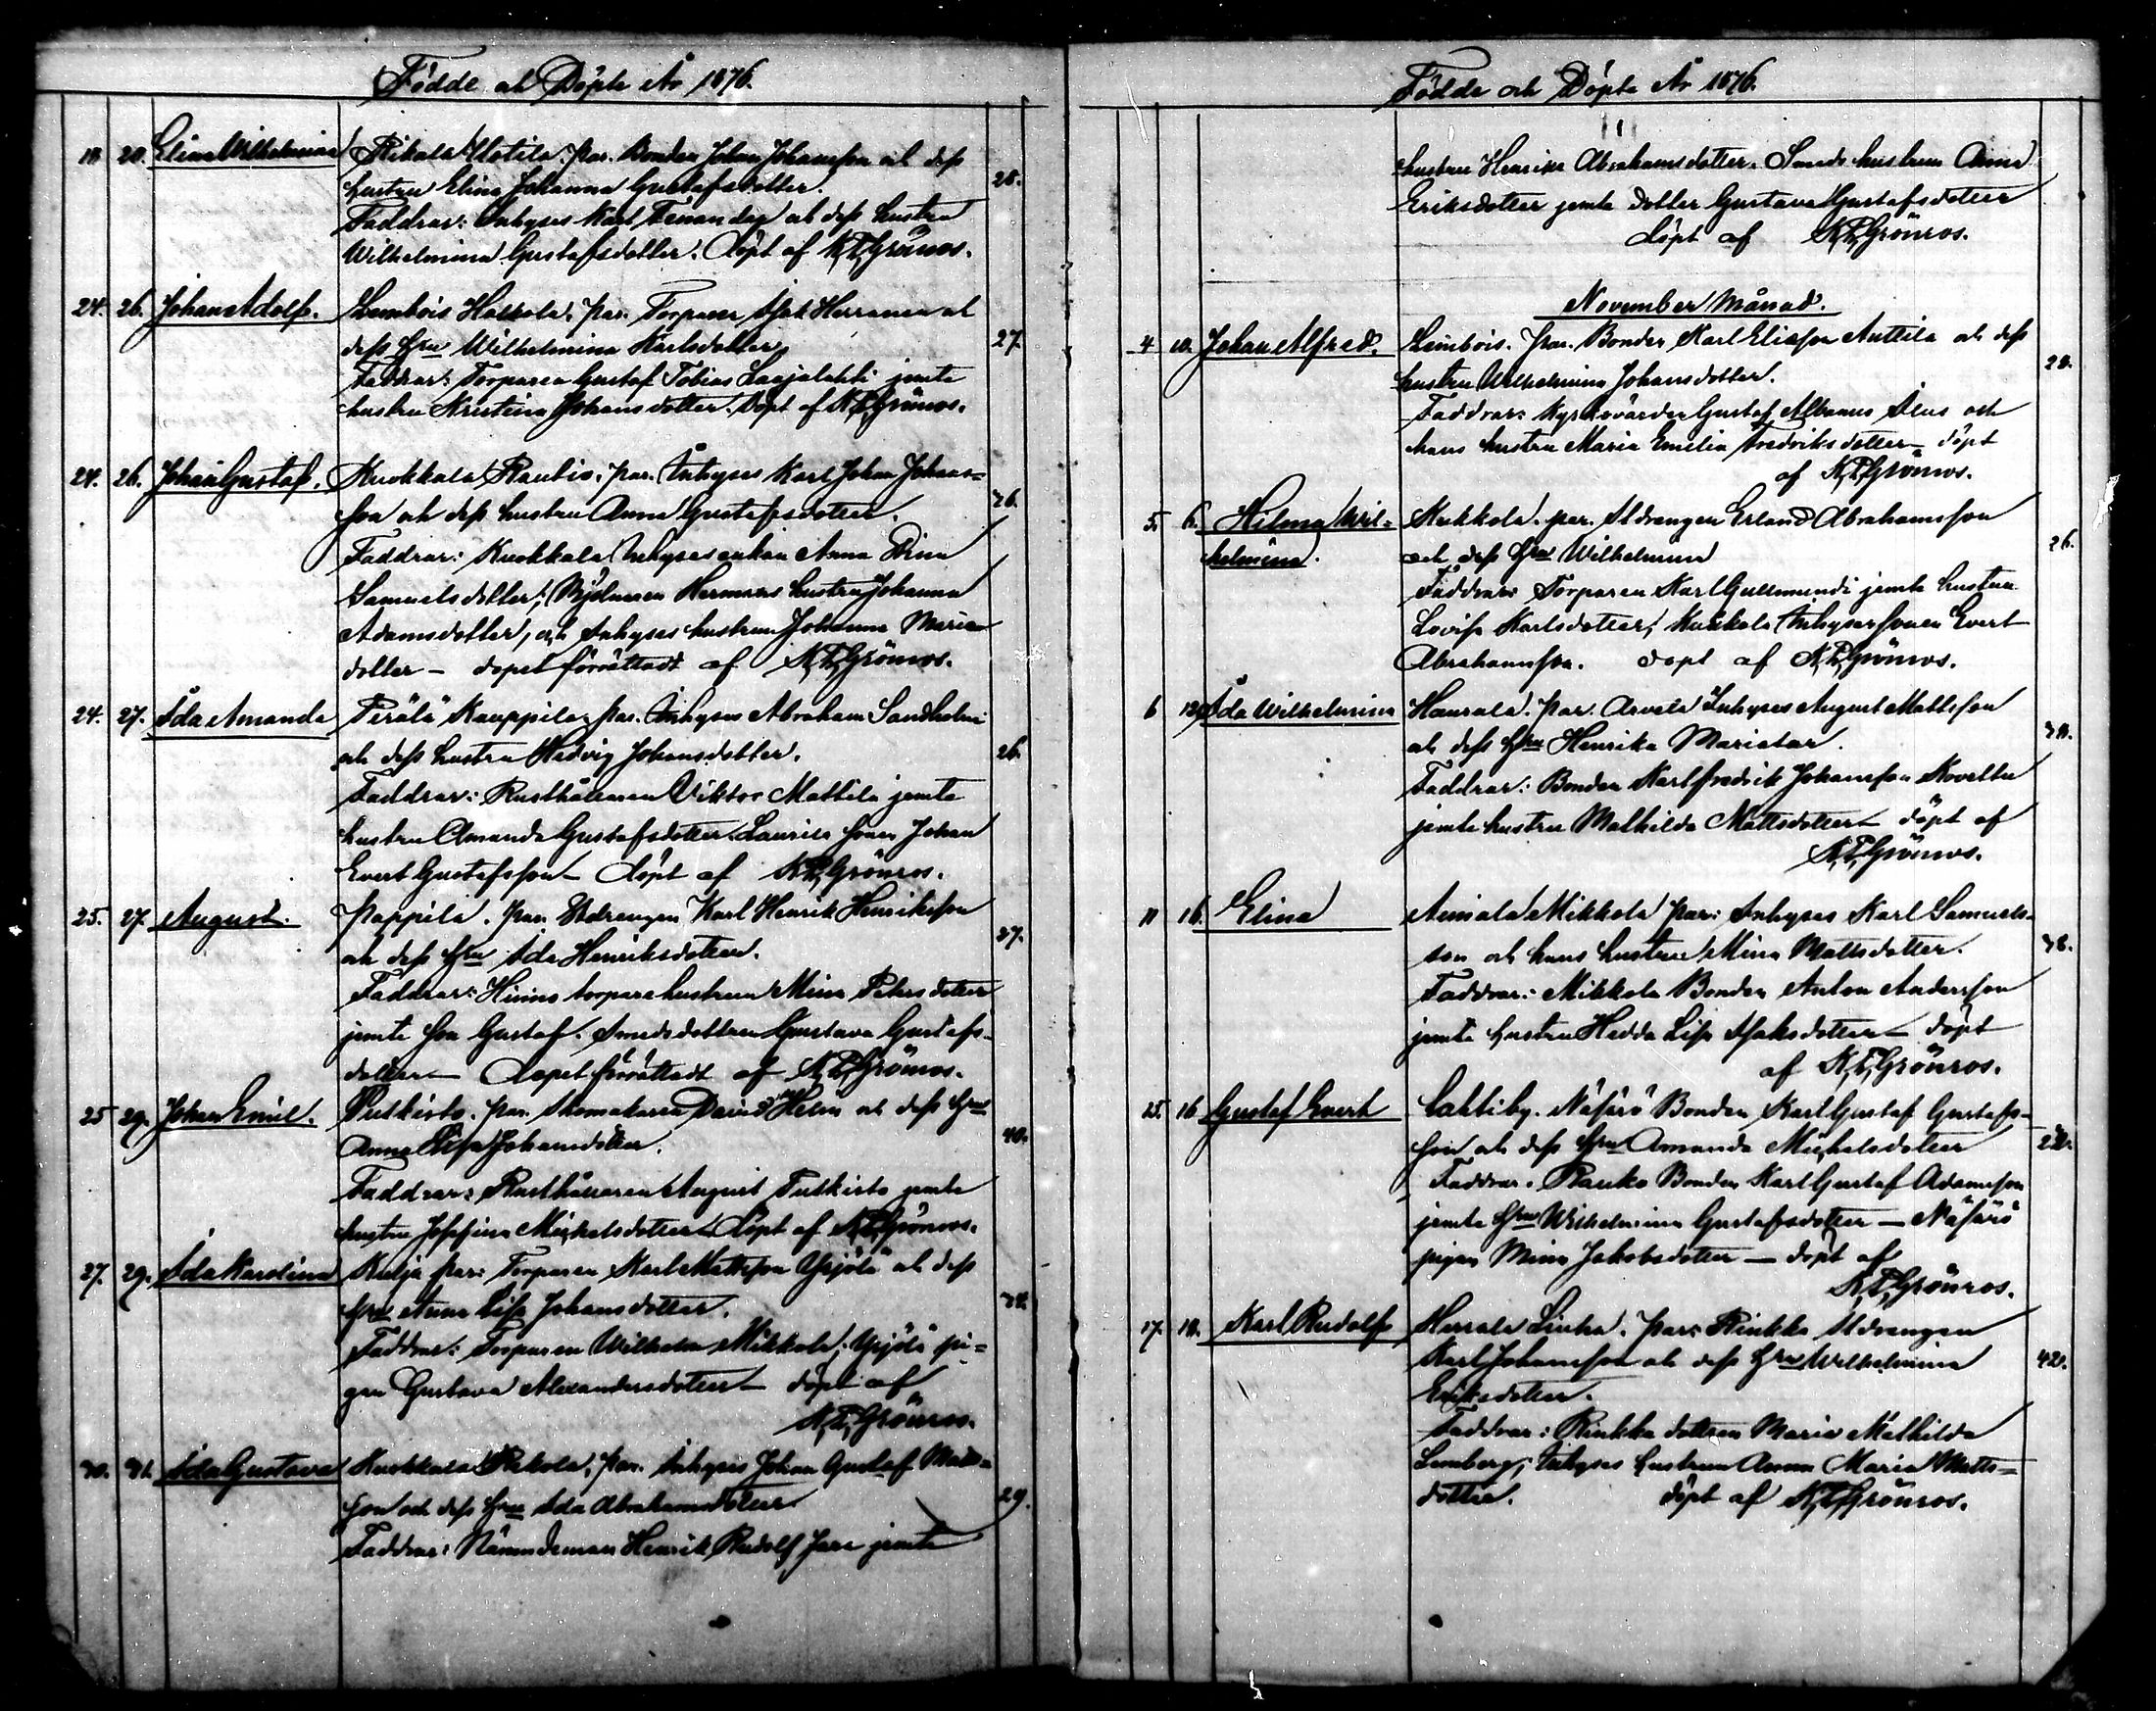 Födde och Döpte År 1876.
19. 20. Elina Wilhelmina Rikala Uotila. par. Bonden Johan Johansson och dess
hustru Elina Johanna Gustafsdotter. 28.
Faddrar: Inhyses Karl Ferian dess och dess hustru
Wilhelmina Gustafsdotter. Döpt af K.F. Grönros.
24. 26. Johan Adolf. Lembois Hakkola, par. Torparen Isak Herranen och
dess Hru Wilhelmina Karlsdotter 27.
Faddrar: Torparen Gustaf Tobias Laajalahti jemte
hustru Kristina Johansdotter. Döpt af K.F. Grönros.
24. 26. Johan Gustaf. Kuokkala Rautio. par. Inhyses Karl Johan Johans=
son och dess hustru Anna Gustafsdotter. 36.
Faddrar: Kuokkala Inhysesenkan Anna Stina
Samuelsdotter, Mjölnaren Hermans hustru Johanna
Adamsdotter, och Inhyses hustrun Johanna Maria
dotter – dopet förrättadt af K.F. Grönros.
24. 27. Ida Amanda Perälä Kauppila, par. Inhyses Abraham Sandholm
och dess hustru Hedvig Johansdotter. 26.
Faddrar: Rusthållaren Viktor Mattila jemte
hustru Amanda Gustafsdotter. Laurila sonen Johan
Evert Gustafsson – döpt af K.F. Grönros.
25. 27. August. Pappila. par. Stdrengen Karl Henrik Henriksson
och dess Hru Ida Henriksdotter. 27.
Faddrar: torparehustrun Mina Petersdotter
jemte son Gustaf. Smedsdottren Gustava Gustafs-
dotter – dopet förrättadt af K.F. Grönros.
25 29. Johan Emil. Putkisto. par. Skomakaren David Helin och dess Hru
Anna Lisa Johansdotter. 40.
Faddrar: Rusthållaren August Putkisto jemte
hustru Josefina Mickelsdotter döpt af K.F. Grönros.
27. 29. Ida Karolina Kulja par: Torparen Karl Mattsson Yrjölä och dess
Hru Anna Lisa Johansdotter. 38.
Faddrar: Torparen Wilhelm Mikkola, Yrjölä pi=
gan Gustava Alexandersdotter – döpt af
K.F. Grönros.
30. 31. Ida Gustava Kuokkala Pekola, par. Inhyses Johan Gustaf Matts=
son och dess Hru Ida Abrahamsdotter. 29.
Faddrar: Nämndeman Henrik Rudolf Jara jemte
Födde och Döpte År 1876.
hustru Henrika Abrahamsdotter. Smeds hustrun Anna
Eriksdotter jemte dotter Gustava Gustafsdotter
döpt af K.F. Grönros.
November Månad.
4 10. Johan Alfred. Lembois. par. Bonden Karl Eliasson Anttila och dess
hustru Wilhelmina Johansdotter. 28.
Faddrar: Kyrkovärden Gustaf Albanus Seus och
hans hustru Maria Emilia Fredriksdotter – döpt
af K.F. Grönros.
5. 6. Hilma Wil= Kukkola. par. Stdrengen Erland Abrahamsson
helmina. och dess Hru Wilhelmina 26.
Faddrar: Torparen Karl Gullmundi jemte hustru
Lovisa Karlsdotter, Inhysessonen Evert
Abrahamsson. döpt af K.F. Grönros.
6 12. Ida Wilhelmina Haurala. par. Arvela Inhyses August Mattsson
och dess Hru Henrika
Faddrar: Bonden Karl Fredrik Johansson
jemte hustru Mathilda Mattsdotter – döpt af
K.F. Grönros.
11 16. Elina Aimala Mikkola par: Inhyses Karl Samuels-
son och hans hustru Mina Mattsdotter. 38.
Faddrar: Mikkola Bonden Anton Andersson
jemte hustru Hedda Lisa Isaksdotter – döpt
af K.F. Grönros.
25. 16 Gustaf Evert Lahtiby. Näsärö Bonden Karl Gustaf Gustafs-
son och dess Hru Amanda Mickelsdotter
Faddrar. Rauko Bonden Karl Gustaf Adamsson
jemte Hru Wilhelmina Gustafsdotter – Näsärö
pigan Mina Jakobsdotter – döpt af
K.F. Grönros.
17. 18. Karl Rudolf Herrala par: Rinkka Stdrengen
Karl Johansson och dess Hru Wilhelmina 42.
Eriksdotter.
Faddrar: Rinkka dottren Maria Mathilda
Lemberg, Inhyses hustrun Anna Maria Matts=
dotter. döpt af K.F. Grönros.